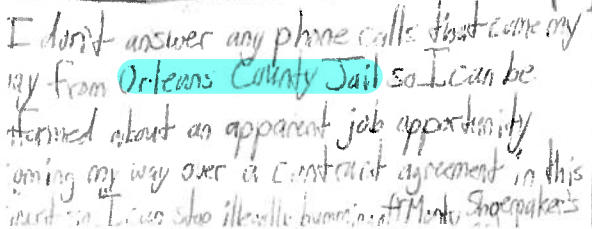 I don't answer any phone calls that come my
way from Orleans County Jail so I can be
formed about an apparent job opportunity
oming my way over a contract agreement in this
I can stop illegally Monty Shoemaker's